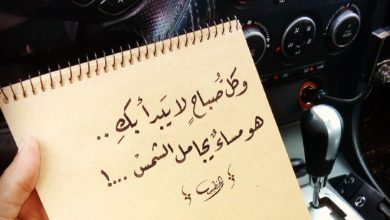 وكل صُباحٍ لا يَبدأ بكِ ..
هو مساءٌ يجامل الشمسْ ....!